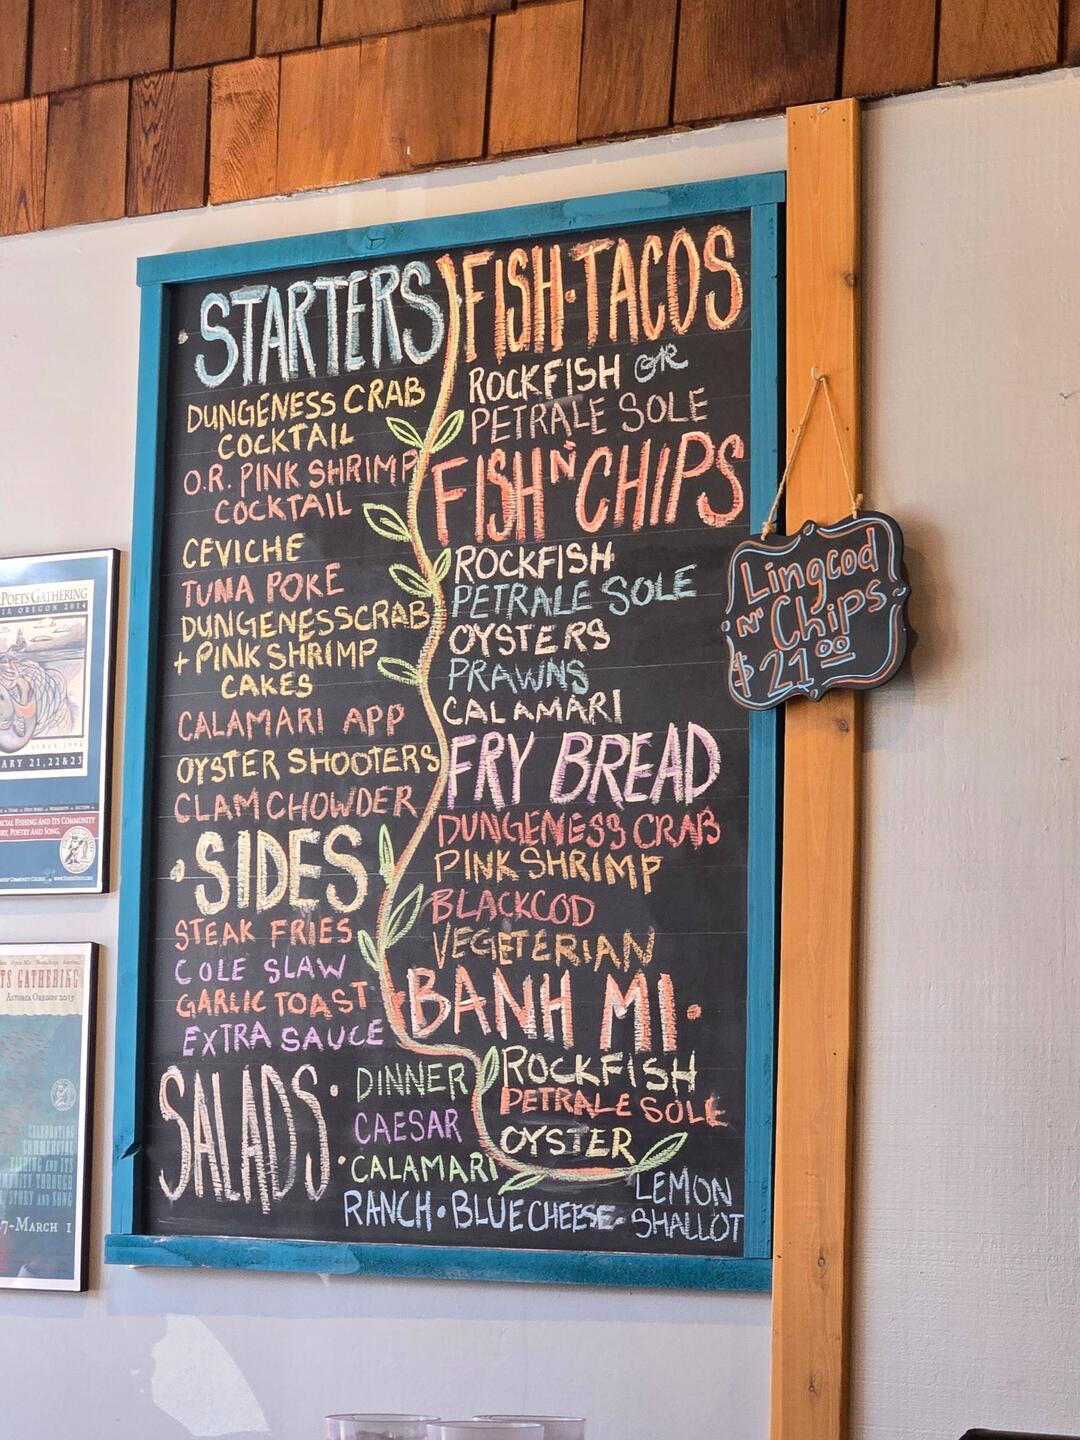 STARTERS
DUNGENESS CRAB
COCKTAIL
O.R. PINK SHRIMP
COCKTAIL
CEVICHE
TUNA POKE
DUNGENESS CRAB
+ PINK SHRIMP
CAKES
CALAMARI APP
OYSTER SHOOTERS
CLAM CHOWDER
• SIDES
STEAK FRIES
COLE SLAW
GARLIC TOAST
EXTRA SAUCE
SALADS
• DINNER
CAESAR
• CALAMARI
RANCH • BLUE CHEESE - LEMON
SHALLOT
FISH • TACOS
ROCKFISH OR
PETRALE SOLE
FISH N CHIPS
ROCKFISH
PETRALE SOLE
OYSTERS
PRAWNS
CALAMARI
FRY BREAD
DUNGENESS CRAB
PINK SHRIMP
BLACKCOD
VEGETERIAN
BANH MI •
ROCKFISH
PETRALE SOLE
OYSTER
Lingcod
N' Chips
$21.00
POETS GATHERING
IA OREGON 2014
SINCE 1998
ARY 21, 22 & 23
CIAL FISHING AND ITS COMMUNITY
RY, POETRY AND SONG.
TS GATHERING
ASTORIA OREGON 2015
7-MARCH 1